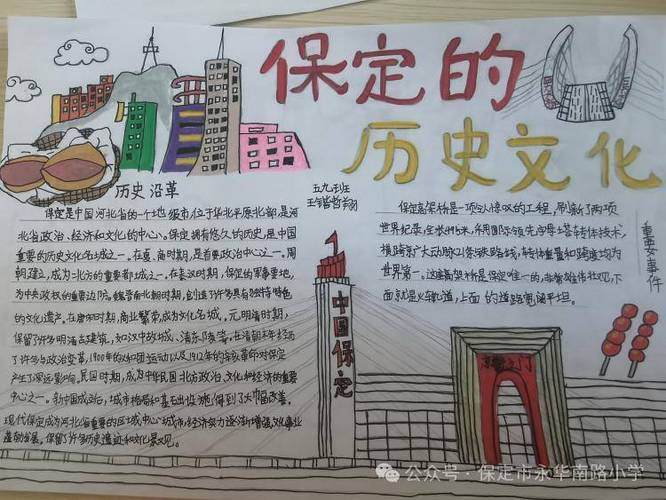 保定的
历史文化
历史沿革
五九班
保定是中国河北省的一个地级市,位于华北平原北部,是河
北省政治、经济和文化的中心。保定拥有悠久的历史,是中国
重要的历史文化名城之一。在夏、商时期,是首要政治中心之一。周
朝建立,成为北方的重要都城之一。在秦汉时期,保定的军事要地,
为中央政权的重要边防。魏晋南北朝时期,创造了许多具有独特特色
的文化遗产。在唐宋时期,商业繁荣,成为文化名城。元明清时期,
保留了许多明清古建筑,如汉中故城、清东陵等,在清朝末年经历
了许多与政治变革,1900年的义和团运动以及1912年的辛亥革命对保定
产生了深远影响。民国时期,成为中华民国北方政治、文化和经济的重要
中心之一。新中国成立后,城市格局和基础设施得到了大幅改善。
现代保定成为河北省重要的区域中心城市,经济实力逐渐增强,文化事业
蓬勃发展,保留了许多历史遗迹和文化景观。
保定高架桥是一项令人惊叹的工程,刷新了两项
世界纪录,全长
采用国际领先子母塔转体技术,
横跨京广大动脉21条铁路线,转体重量和跨度均为
世界第一。这座高架桥是保定唯一的,非常雄伟壮观,下
面就是火辙轨道,上面的道路宽阔平坦。
重要事件
中国保定
之门
公众号·保定市永华南路小学